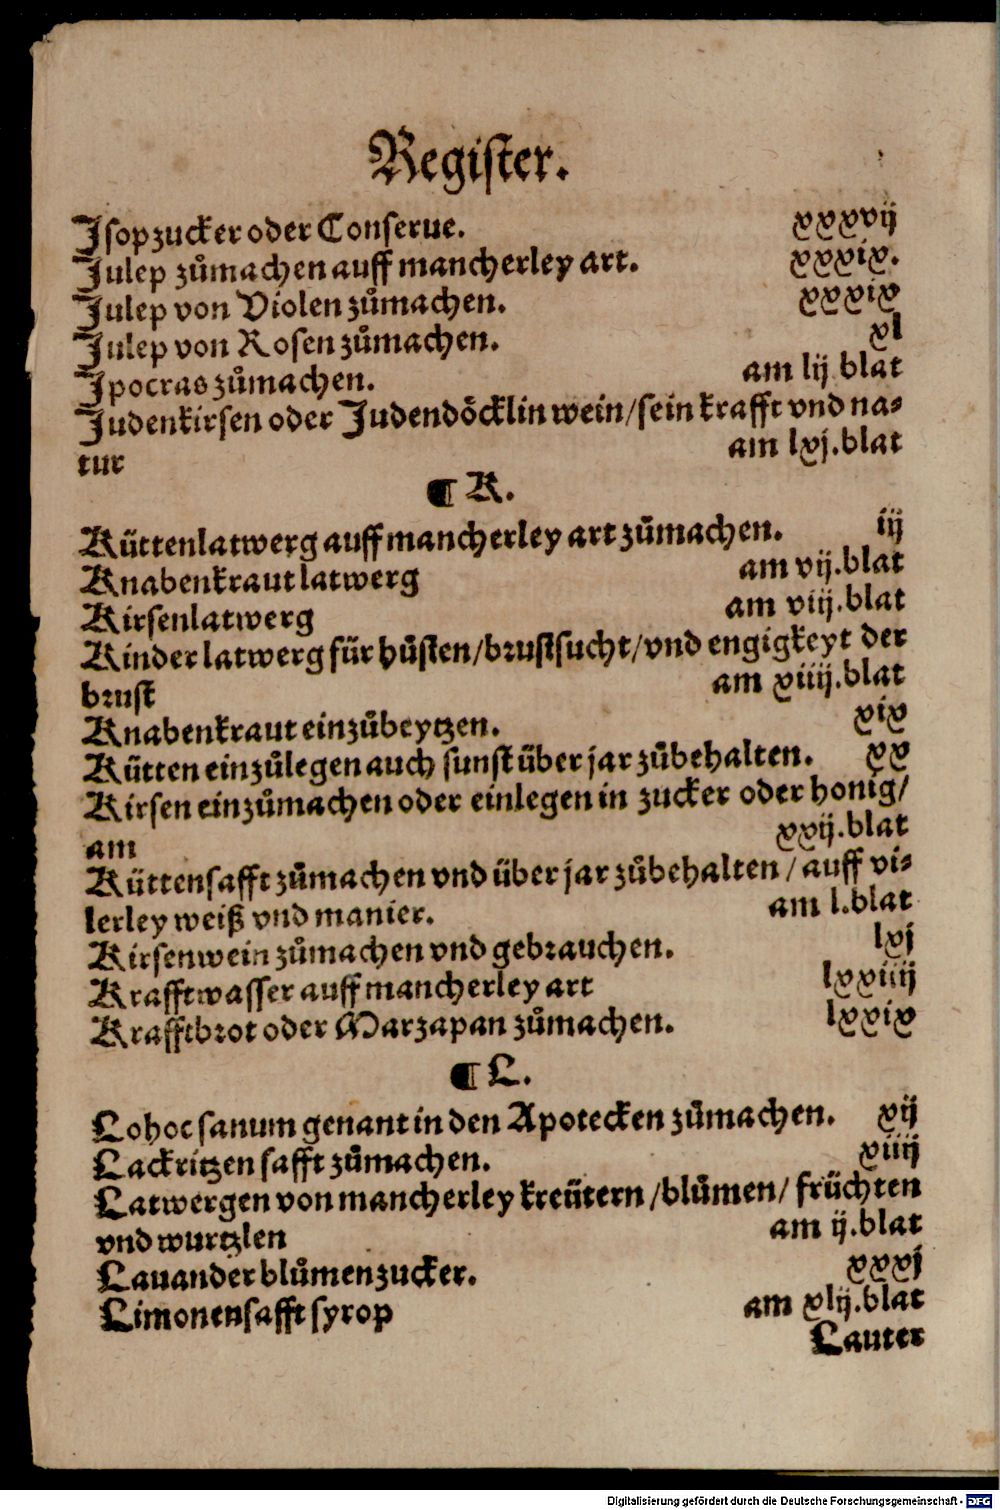 Register.
Isopzucker oder Conserue. xxxvij
Julep zůmachen auff mancherley art. xxxix.
Julep von Violen zůmachen. xxxix
Julep von Rosen zůmachen. xl
Ipocras zůmachen. am lij blat
Judenkirsen oder Judendöcklin wein/sein krafft vnd na-
tur am lxj.blat
¶ K.
Küttenlatwerg auff mancherley art zůmachen. iij
Knabenkraut latwerg am vij.blat
Kirsenlatwerg am viij.blat
Kinder latwerg für hůsten/brustsucht/vnd engigkeyt der
brust am xiiij.blat
Knabenkraut einzůbeytzen. xix
Kütten einzůlegen auch sunst über jar zůbehalten. xx
Kirsen einzůmachen oder einlegen in zucker oder honig/
am xxij.blat
Küttensafft zůmachen vnd über jar zůbehalten / auff vi-
lerley weiß vnd manier. am l.blat
Kirsenwein zůmachen vnd gebrauchen. lxj
Krafftwasser auff mancherley art lxxiiij
Krafftbrot oder Marzapan zůmachen. lxxix
¶ L.
Lohoc sanum genant in den Apotecken zůmachen. xij
Lackritzen safft zůmachen. xiiij
Latwergen von mancherley kreütern /blůmen/ früchten
vnd wurtzlen am ij.blat
Lauander blůmenzucker. xxxj
Limonensafft syrop am xlij.blat
Lauter
Digitalisierung gefördert durch die Deutsche Forschungsgemeinschaft - DFG